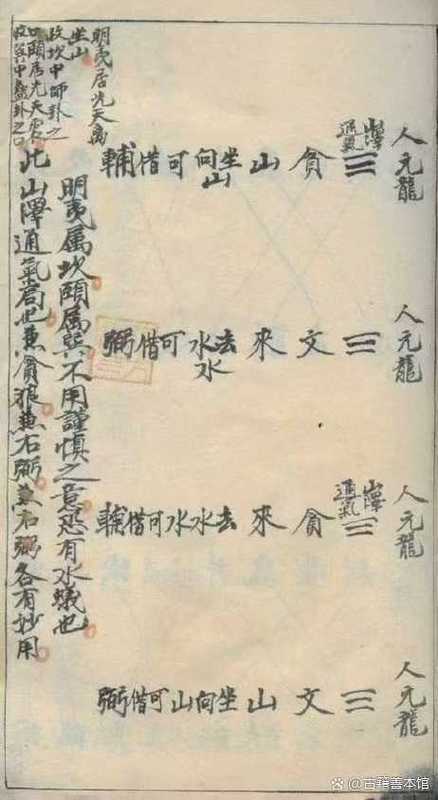 人元龍
山澤通氣
☶
貪
山
坐山向
可借輔
人元龍
☱
文
來
去水水
可借弼
人元龍
山澤通氣
貪
來
去水水可借輔
人元龍
文
山
坐向山可借弼
明夷居先天离
坐山
收坎中師卦之
口頤居先天震
收巽中蠱卦之口
明夷属坎頤属巽不用謹慎之意恐有水蟻也
此山澤通氣局也兼貪狼兼右弼兼右弼各有妙用
@古籍善本馆